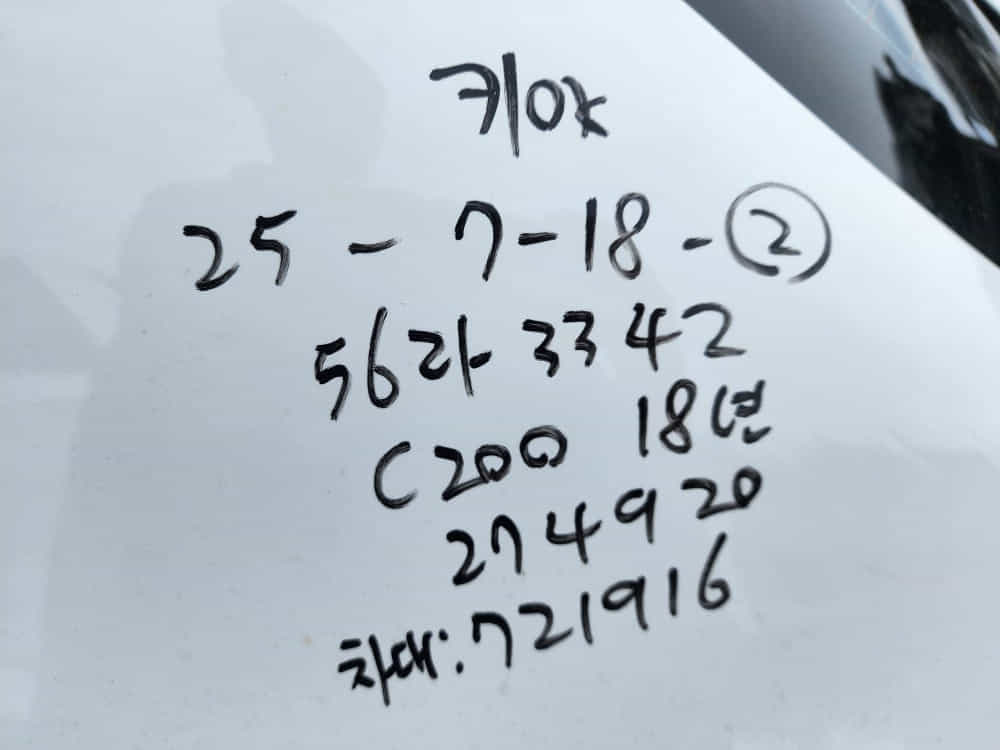 키야
25-7-18-②
56라 3342
C200 18년
274920
차대:721916